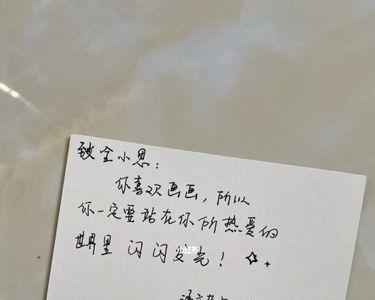 致全小恩：
你喜欢画画，所以
你一定要站在你所热爱的
世界里 闪闪发亮！